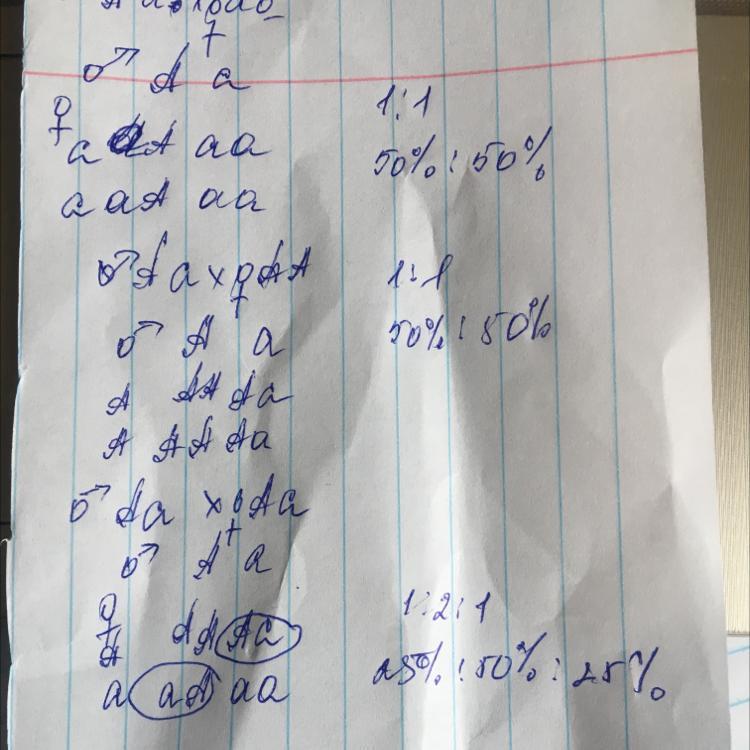 ♂ A a
1:1
♀
a aA aa
50% : 50%
a aA aa
♂ Aa x ♀ AA
1:1
♂ A a
50% : 50%
A AA Aa
A AA Aa
♂ Aa x ♀ Aa
♂ A a
♀
1:2:1
A AA Aa
25% : 50% : 25%
a aA aa